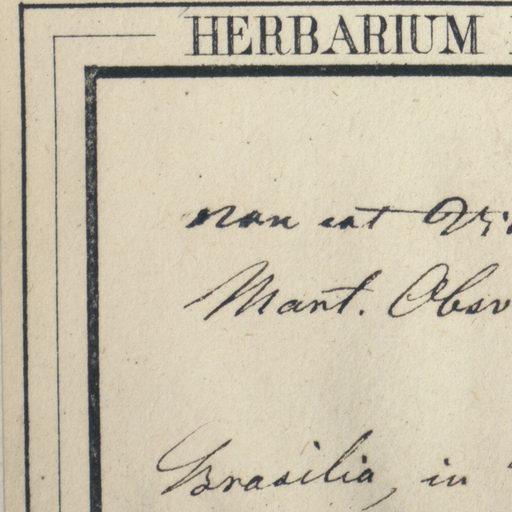 HERBARIUM
non est
Mant. Obsv
Brasilia, in